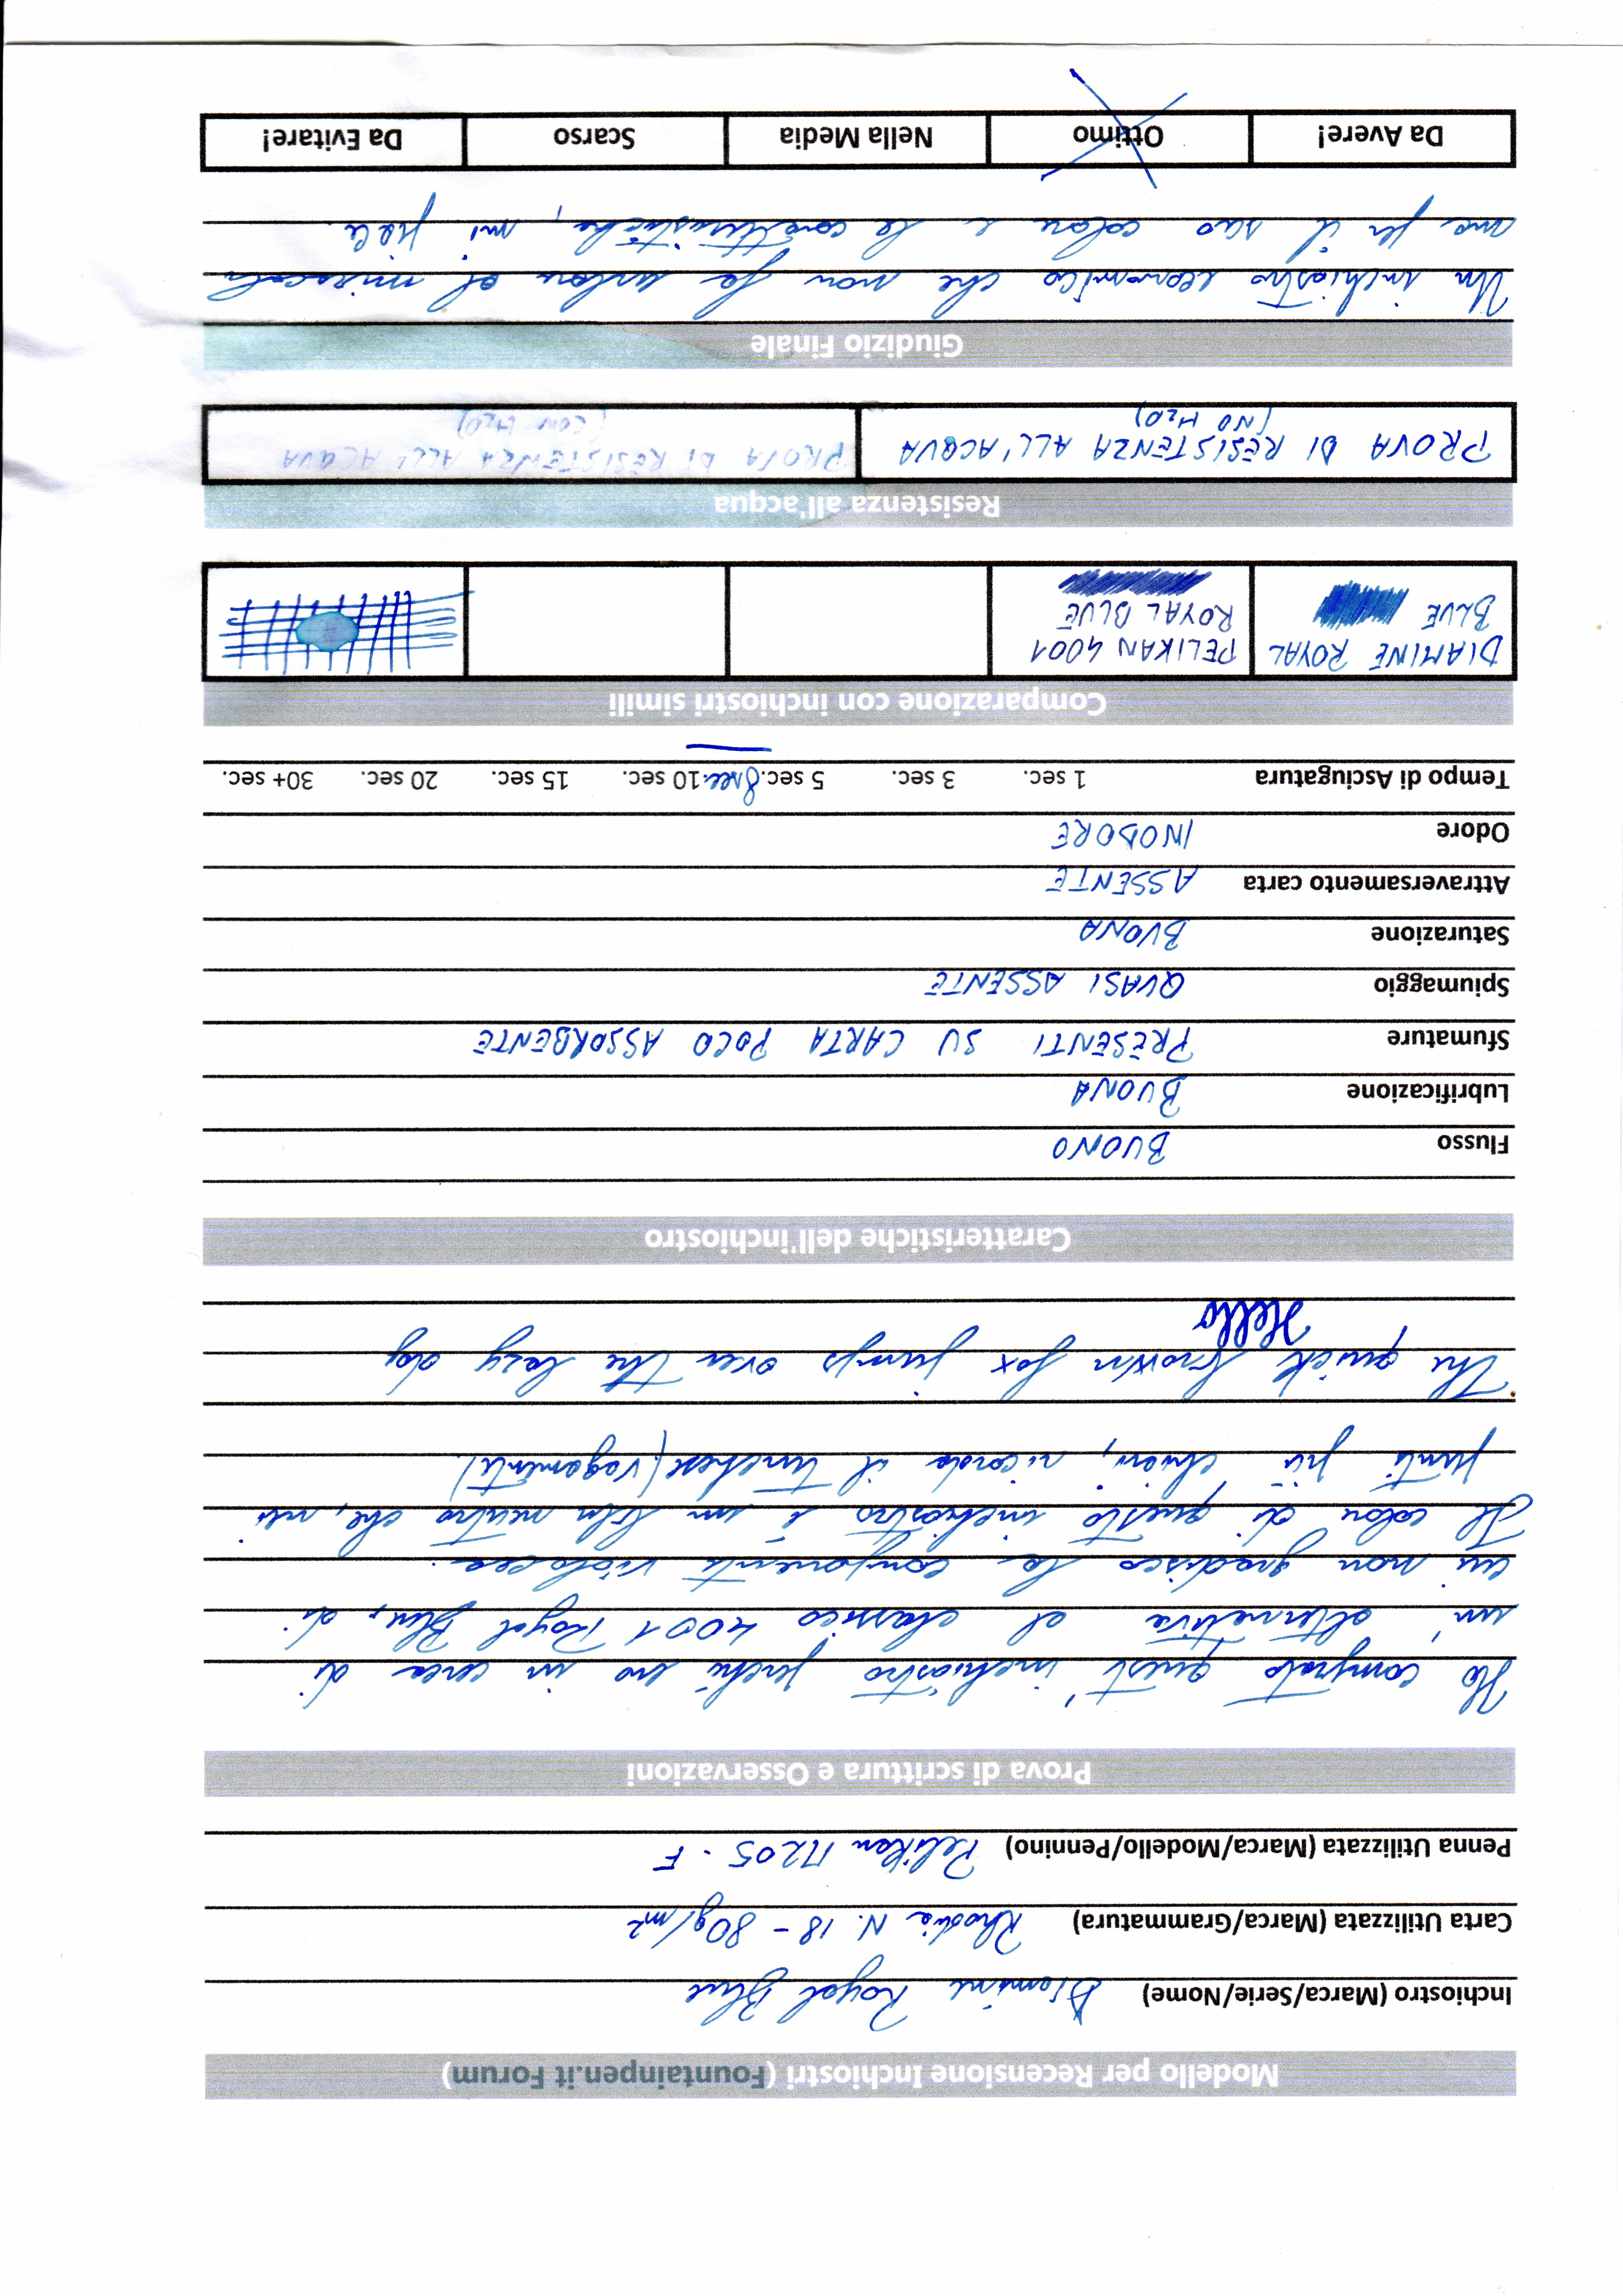 Modello per Recensione Inchiostri (Fountainpen.it Forum)
Inchiostro (Marca/Serie/Nome) Diamine Royal Blue
Carta Utilizzata (Marca/Grammatura) Rhodia N. 18 - 80g/m²
Penna Utilizzata (Marca/Modello/Pennino) Pelikan M205 - F
Prova di scrittura e Osservazioni
Ho comprato quest'inchiostro perché ero in cerca di
un'alternativa al classico 4001 Royal Blue, di
cui non gradisco la componente violacea.
Il colore di questo inchiostro è un blu neutro che, nei
punti più chiari, ricorda il turchese (vagamente).
The quick brown fox jumps over the lazy dog
Hello
Caratteristiche dell'inchiostro
Flusso BUONO
Lubrificazione BUONA
Sfumature PRESENTI SU CARTA POCO ASSORBENTE
Spiumaggio QUASI ASSENTE
Saturazione BUONA
Attraversamento carta ASSENTE
Odore INODORE
Tempo di Asciugatura 1 sec. 3 sec. 5 sec. 8 sec. 10 sec. 15 sec. 20 sec. 30+ sec.
Comparazione con inchiostri simili
DIAMINE ROYAL BLUE
PELIKAN 4001 ROYAL BLUE
Resistenza all'acqua
PROVA DI RESISTENZA ALL'ACQUA (NO H₂O)
PROVA DI RESISTENZA ALL'ACQUA (CON H₂O)
Giudizio Finale
Un inchiostro economico che non fa urlare al miracolo
ma, per il suo colore e le caratteristiche, mi piace.
Da Avere! Ottimo Nella Media Scarso Da Evitare!